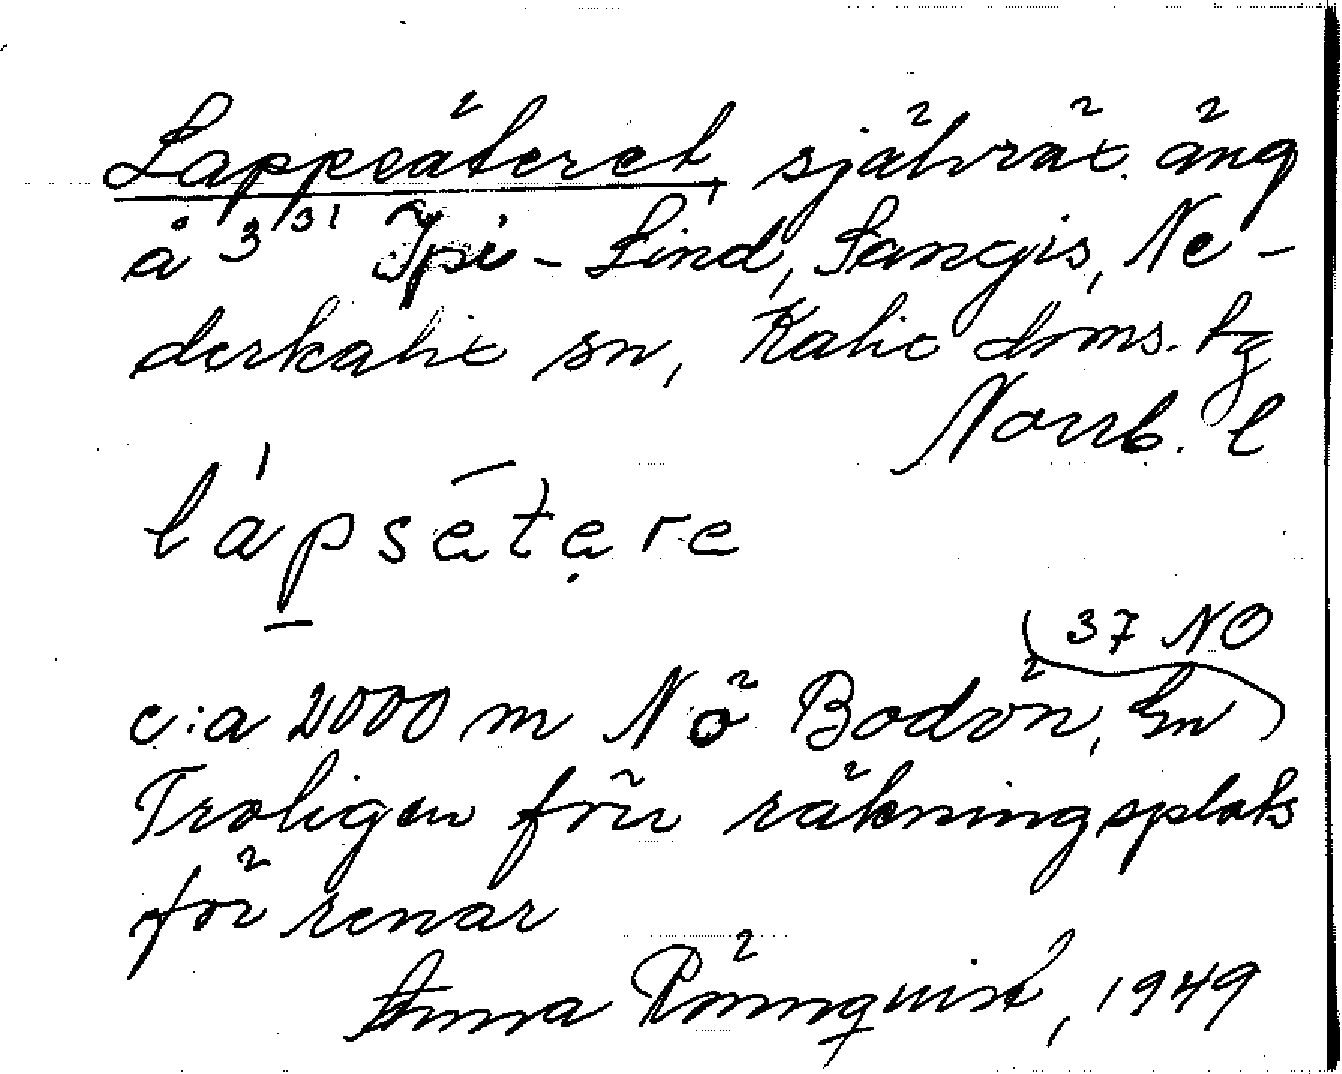 Lappsäteret, självväx. äng
å 3³¹ Ypi-Lind, Sangis, Ne-
derkalix sn, Kalix doms. tg
Norrb. l
lapsetere
37 NO
c:a 2000 m NÖ Bodön,
Troligen förr räkningsplats
för renar
Anna Rönnquist, 1949